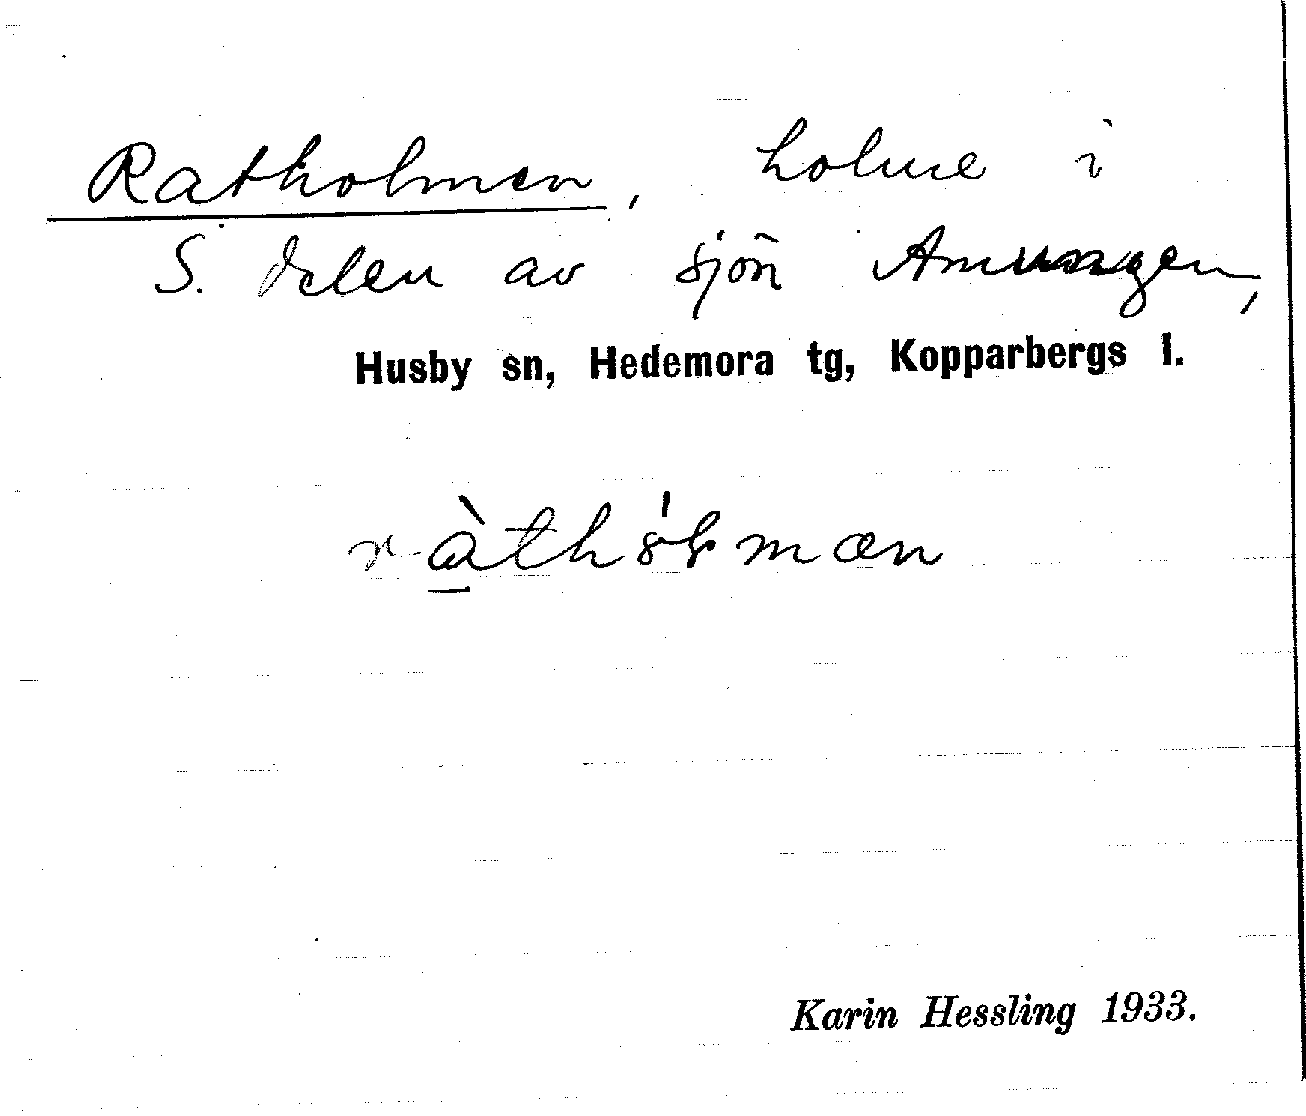 Ratholmen, holme i
S. delen av sjön Amungen,
Husby sn, Hedemora tg, Kopparbergs l.
Karin Hessling 1933.